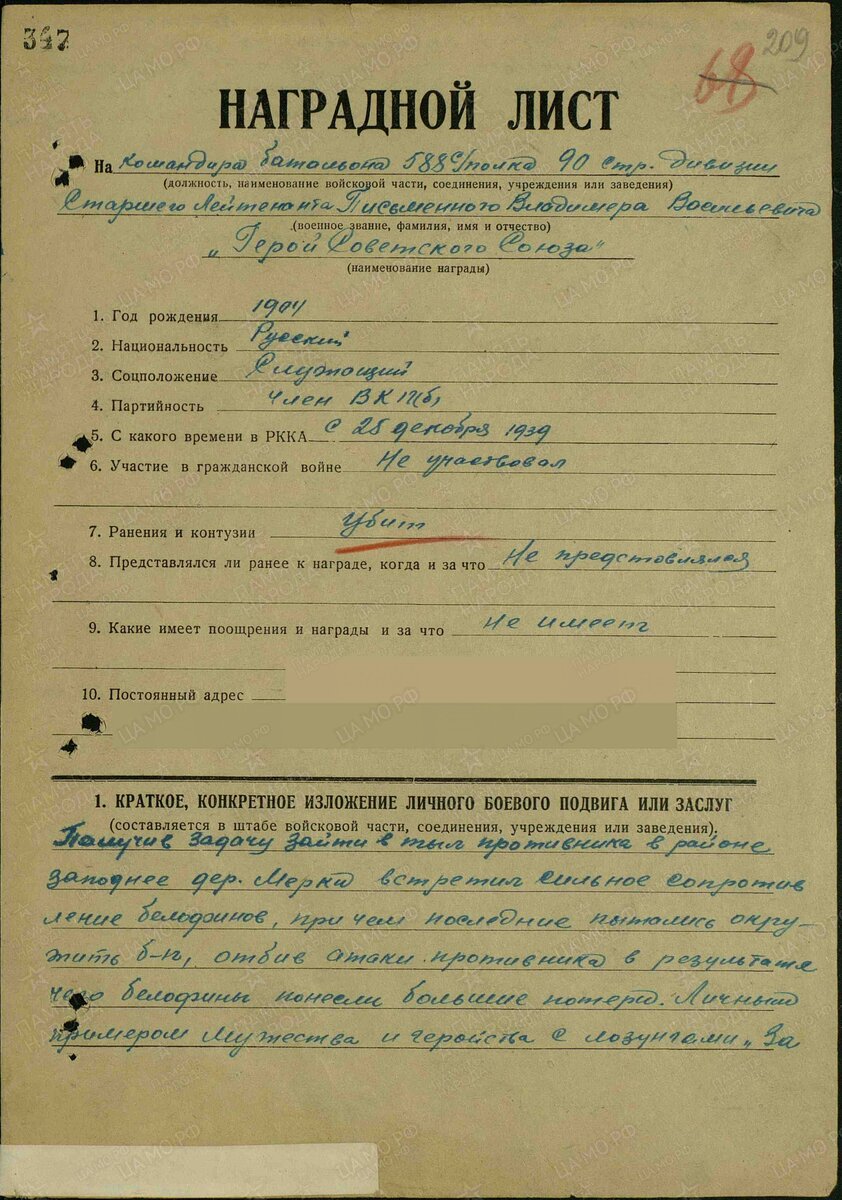 347
209
68
НАГРАДНОЙ ЛИСТ
На командира батальона 588 с/полка 90 стр. дивизии
(должность, наименование войсковой части, соединения, учреждения или заведения)
Старшего Лейтенанта Письменного Владимера Васильевича
(военное звание, фамилия, имя и отчество)
„Герой Советского Союза"
(наименование награды)
1. Год рождения 1904
2. Национальность Русский
3. Соцположение Служащий
4. Партийность Член ВКП(б)
5. С какого времени в РККА с 25 декабря 1939
6. Участие в гражданской войне Не участвовал
7. Ранения и контузии Убит
8. Представлялся ли ранее к награде, когда и за что Не представлялся
9. Какие имеет поощрения и награды и за что Не имеет
10. Постоянный адрес
1. КРАТКОЕ, КОНКРЕТНОЕ ИЗЛОЖЕНИЕ ЛИЧНОГО БОЕВОГО ПОДВИГА ИЛИ ЗАСЛУГ
(составляется в штабе войсковой части, соединения, учреждения или заведения).
Получив задачу зайти в тыл противника в районе
западнее дер. Мерки встретил сильное сопротив
ление белофинов, при чем последние пытались окру-
жить б-н, отбив атаки противника в результате
чего белофины понесли большие потери. Личным
примером мужества и геройства с лозунгами „За